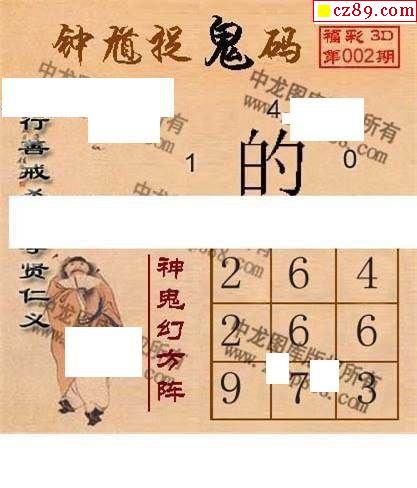 cz89.com
钟馗捉鬼码
福彩3D
第002期
4
1 的 0
行善戒
贤仁义
神鬼幻方阵
2 6 4
2 6 6
9 7 3